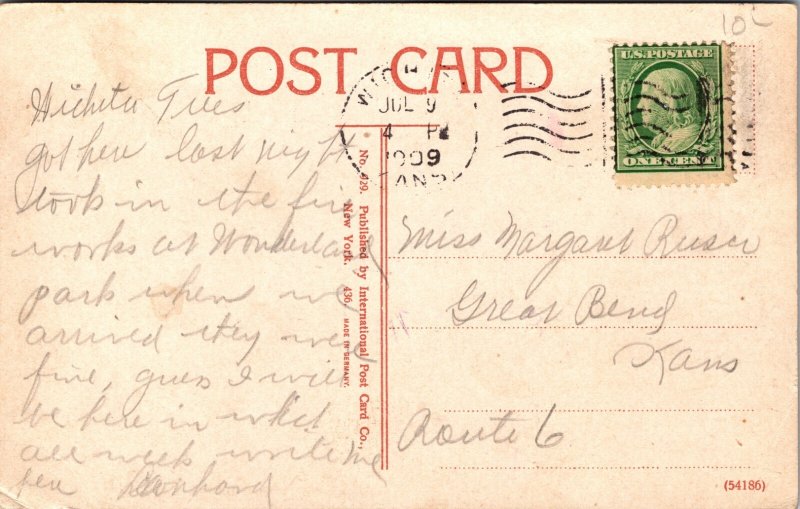 10-
POST CARD
U.S. POSTAGE
ONE CENT
JUL 9
4 PM
1909
KANS
Wichita Tues
got here last night
took in the fire
works at Wonderland
park when we
arrived they were
fine, guess I will
be here in wichit
all week write me
here
No. 929. Published by International Post Card Co.,
New York. 436. MADE IN GERMANY.
Miss Margaret
Great Bend
Kans
Route 6
(54186)